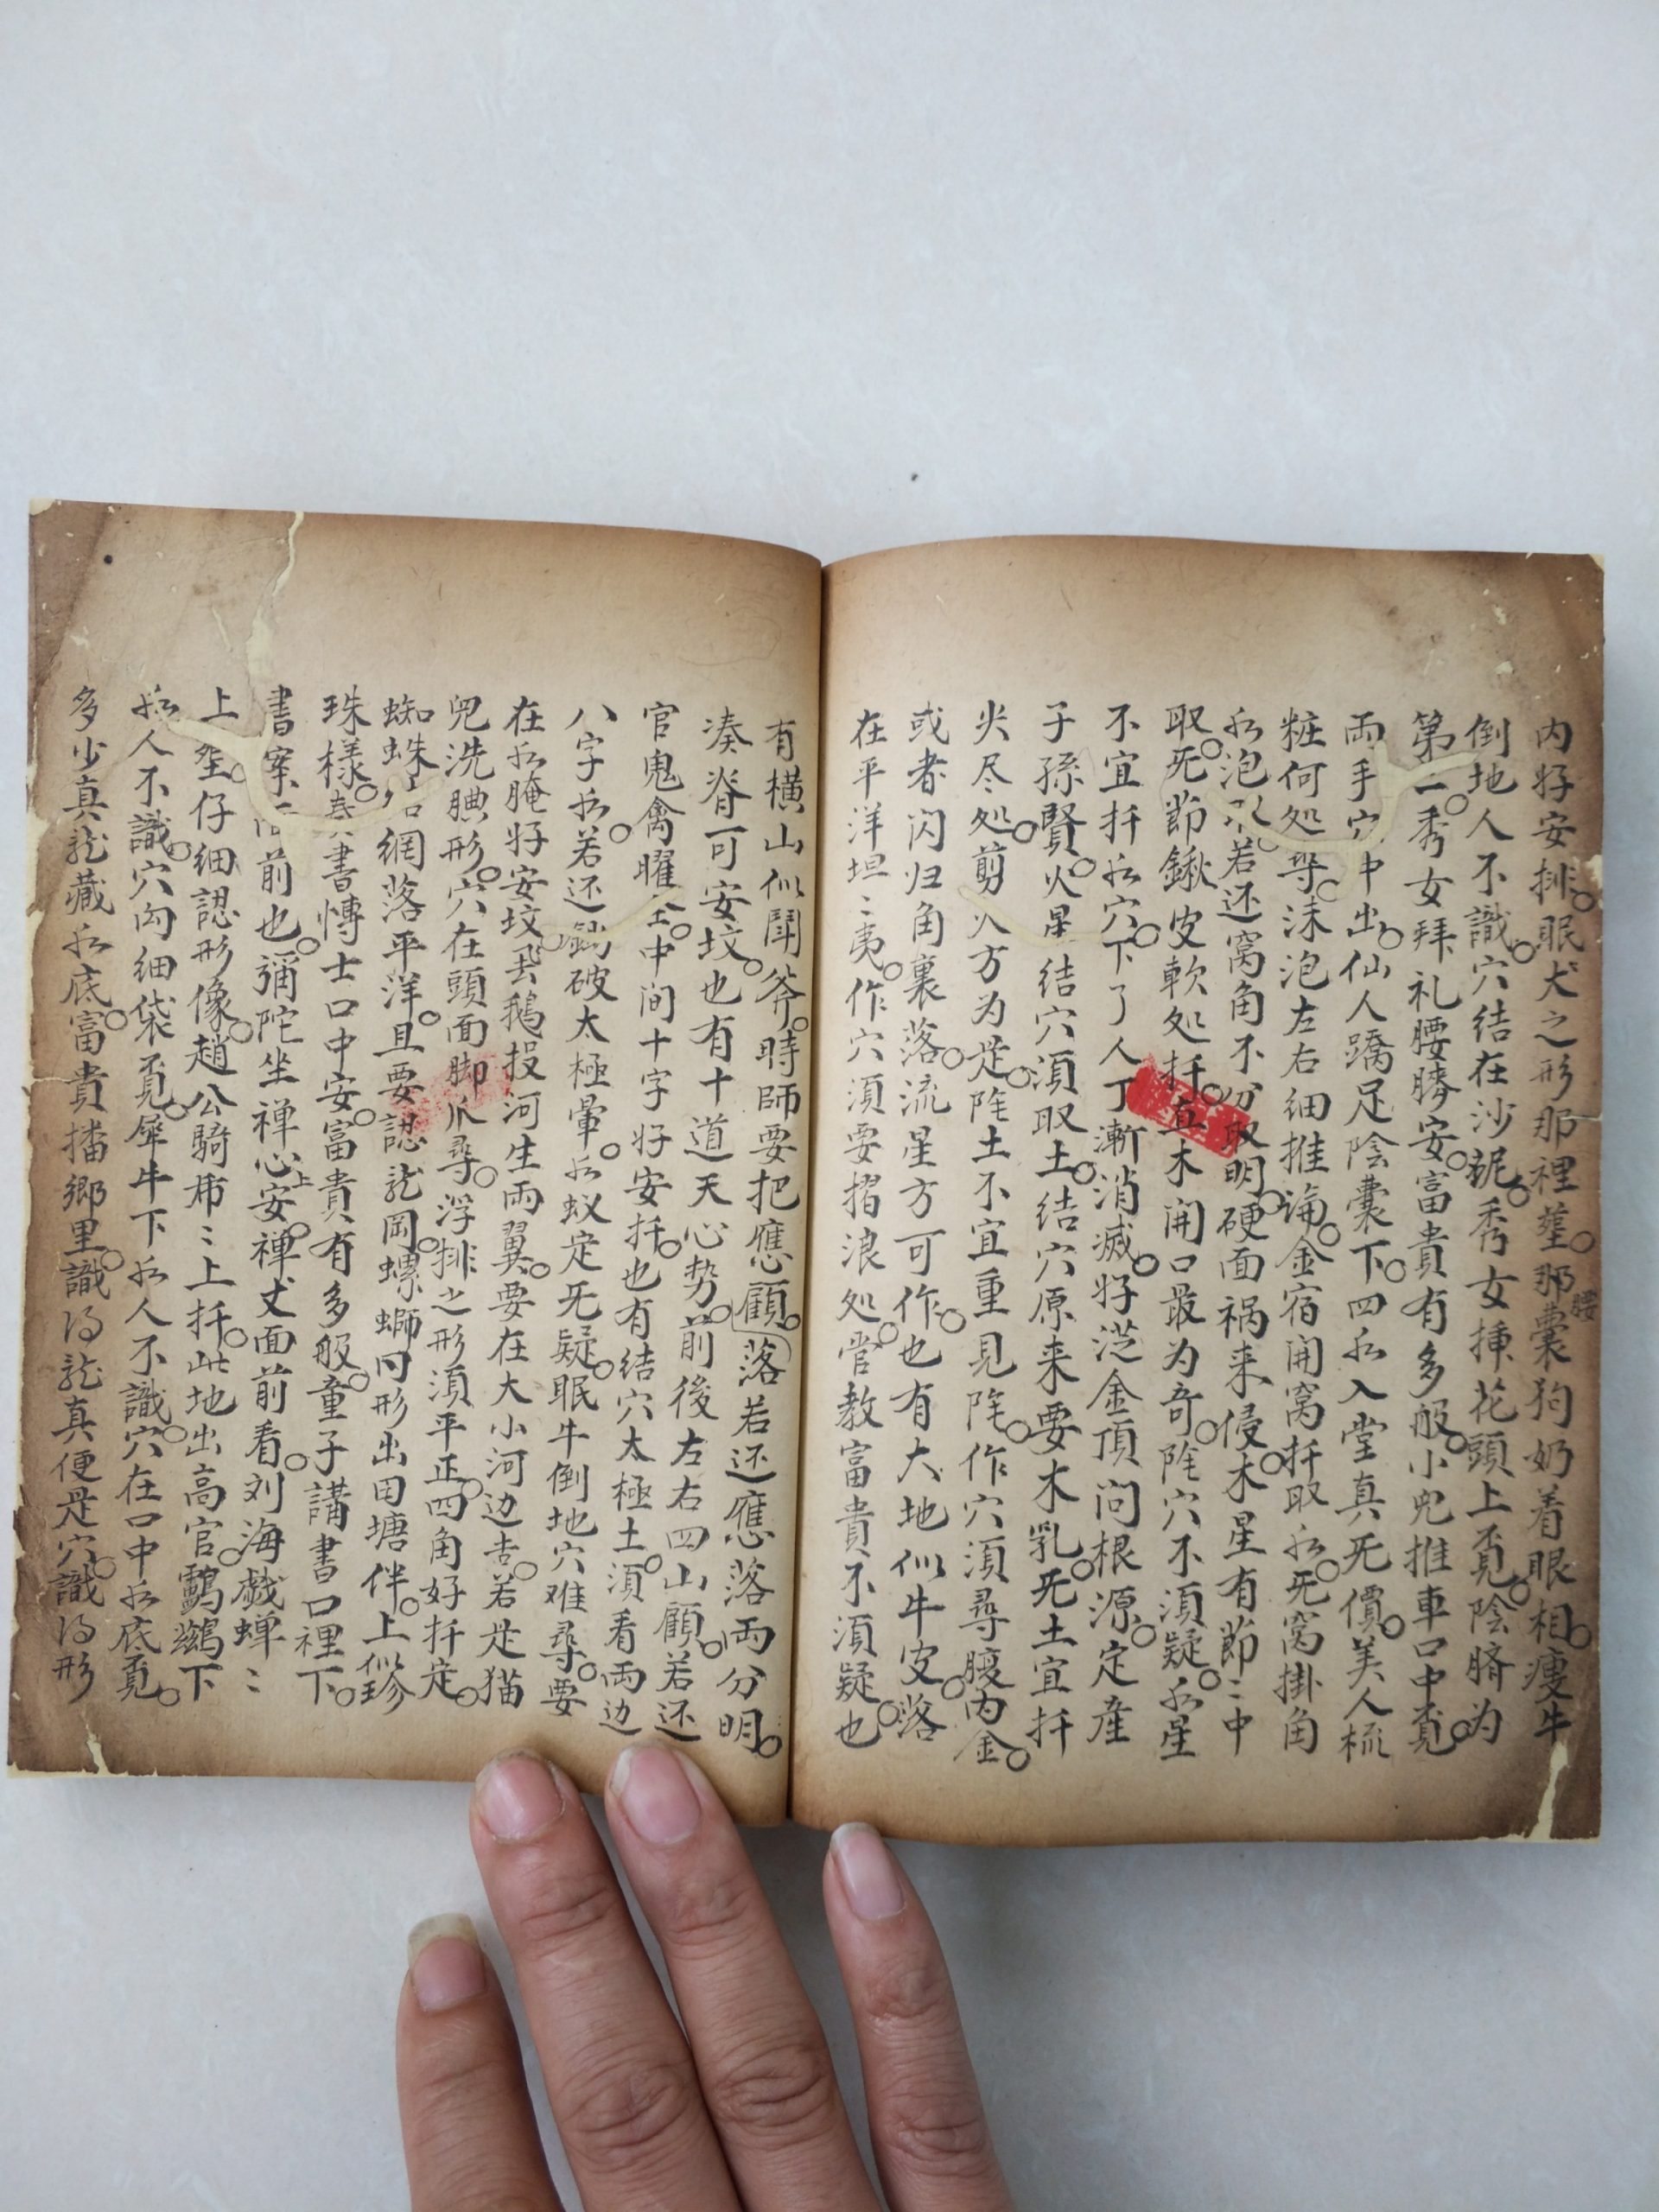 内好安排眠犬之形那裡塟那囊狗奶着眼相瘦牛
腰
倒地人不識穴結在沙坭秀女揷花頭上覔陰臍为
第一秀女拜礼腰臍安富貴有多般小兜推車口中覔
両手穴中出仙人蹻足陰囊下四水入堂真死價美人梳
粧何処尋沫泡左右细推論金宿開窝扦取水死窝掛角
水泡 若还窝角不分取明硬面祸来侵木星有節〻中
取死節鍬皮軟処扦直木開口最为奇陡穴不須疑水星
不宜扦水穴下了人丁漸消滅好泛金頂问根源定産
子孫賢火星结穴須取土结穴原来要木乳死土宜扦
尖尽処剪火方为是陡土不宜重見陡作穴須尋腰内金
或者闪归角裏落流星方可作也有大地似牛皮落
在平洋坦〻夷作穴須要摺浪処管教富貴不須疑也
有橫山似鬪斧時師要把應顧落若还應落両分明
凑脊可安坟也有十道天心势前後左右四山顧若还
官鬼禽曜 中间十字好安扦也有结穴太極土須看両边
八字水若还鋤破太極暈水蚁定死疑眠牛倒地穴难尋要
在水腌好安坟 鵝投河生両翼要在大小河边去若是猫
兜洗腆形穴在頭面脚爪尋浮排之形須平正四角好扦定
蜘蛛 網落平洋且要認龙岡螺螄冋形出田塘伴上似珍
珠様 書愽士口中安富貴有多般童子講書口裡下
書案 前也彌陀坐禅心安禅丈面前看刘海戯蝉〻
上
上 仔细認形像趙公騎 〻上扦此地出高官鸕鷀下
水人不識穴向细袋覔犀牛下水人不識穴在口中水底覔
多少真龙藏水底富貴播鄉里識得龙真便是穴識得形